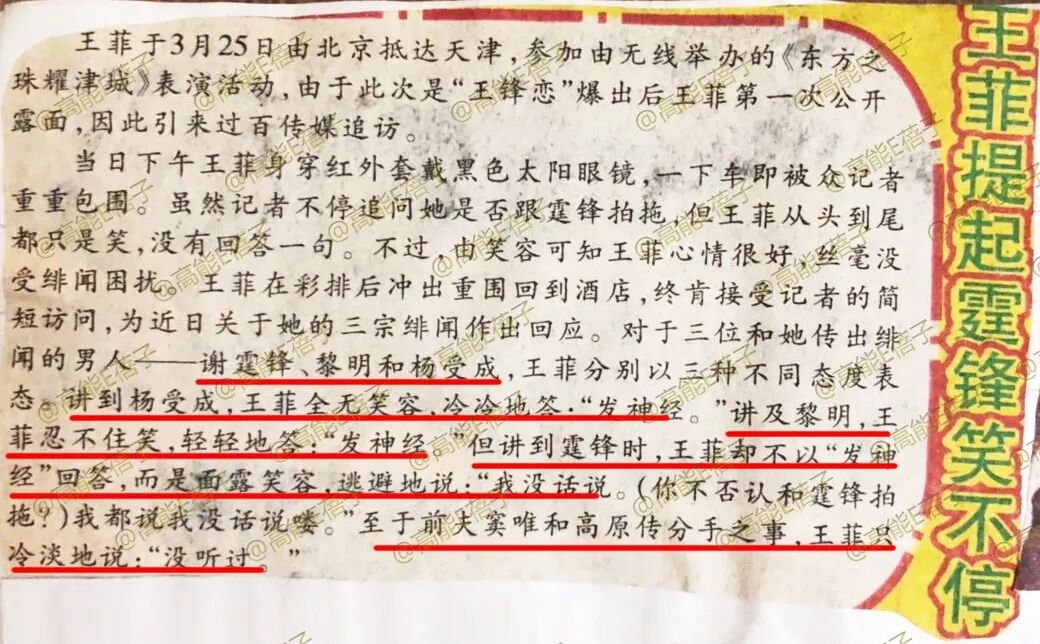 王菲于3月25日由北京抵达天津，参加由无线举办的《东方之
珠耀津城》表演活动，由于此次是“王锋恋”爆出后王菲第一次公开
露面，因此引来过百传媒追访。
当日下午王菲身穿红外套戴黑色太阳眼镜，一下车即被众记者
重重包围。虽然记者不停追问她是否跟霆锋拍拖，但王菲从头到尾
都只是笑，没有回答一句。不过，由笑容可知王菲心情很好，丝毫没
受绯闻困扰。王菲在彩排后冲出重围回到酒店，终肯接受记者的简
短访问，为近日关于她的三宗绯闻作出回应。对于三位和她传出绯
闻的男人——谢霆锋、黎明和杨受成，王菲分别以三种不同态度表
态。讲到杨受成，王菲全无笑容，冷冷地答：“发神经。”讲及黎明，王
菲忍不住笑，轻轻地答：“发神经。”但讲到霆锋时，王菲却不以“发神
经”回答，而是面露笑容，逃避地说：“我没话说。（你不否认和霆锋拍
拖？）我都说我没话说喽。”至于前夫窦唯和高原传分手之事，王菲只
冷淡地说：“没听过。”
王菲提起霆锋笑不停
@高能E蓓子